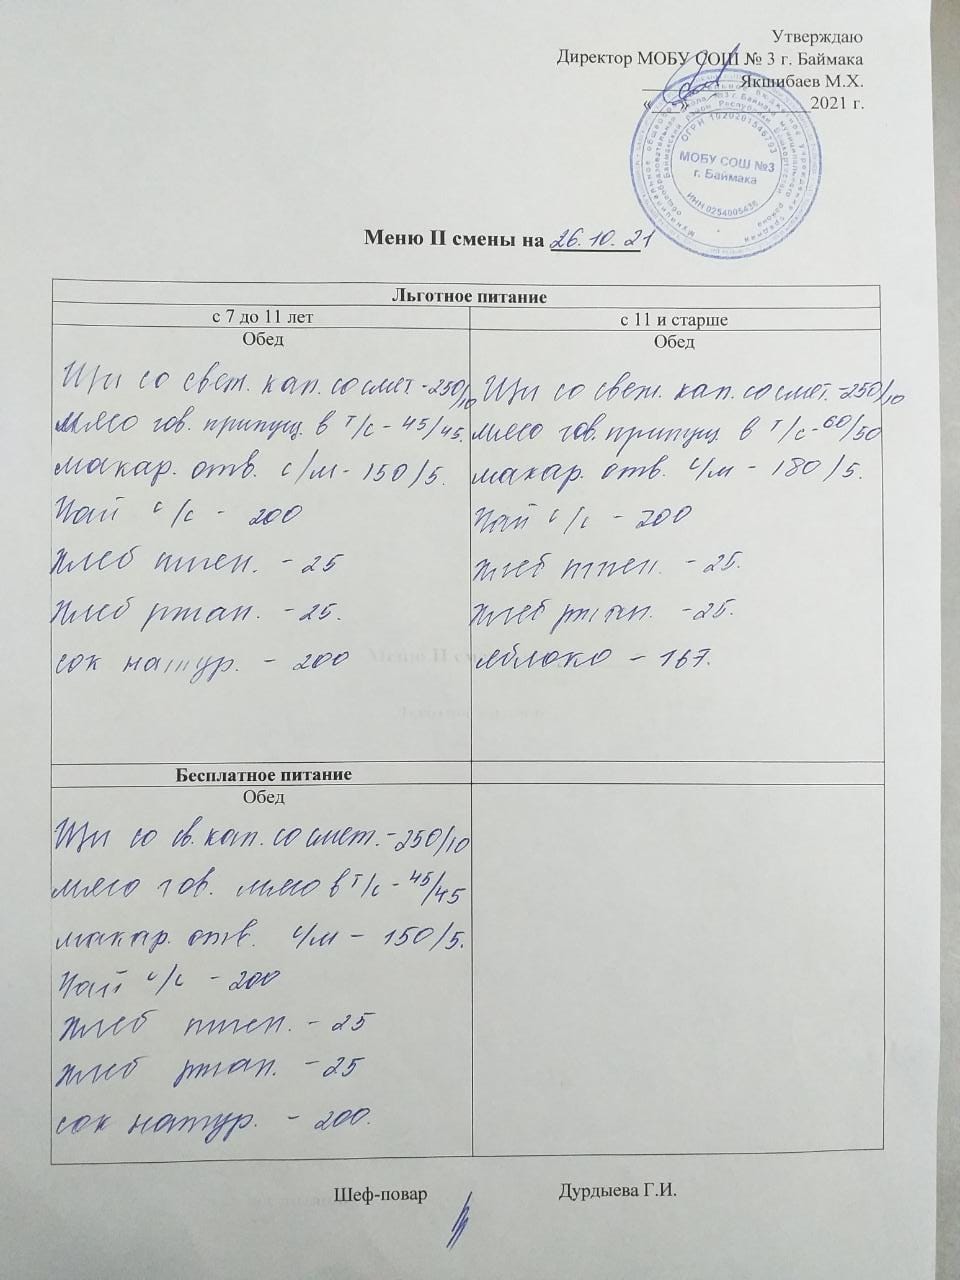 Утверждаю
Директор МОБУ СОШ № 3 г. Баймака
Якшибаев М.Х.
« » 2021 г.
ОГРН 1020201546793
МОБУ СОШ №3
г. Баймака
ИНН 0254005436
Меню II смены на 26.10.21
Льготное питание
с 7 до 11 лет
с 11 и старше
Обед
Щи со свеж. кап. со смет. - 250/10
мясо гов. припущ. в т/с - 45/45.
макар. отв. с/м - 150/5.
Чай с/с - 200
Хлеб пшен. - 25
Хлеб ржан. - 25.
сок натур. - 200
Обед
Щи со свеж. кап. со смет. - 250/10
мясо гов. припущ в т/с - 60/50
макар. отв. с/м - 180/5.
Чай с/с - 200
Хлеб пшен. - 25.
Хлеб ржан. - 25.
яблоко - 167.
Бесплатное питание
Обед
Щи со св. кап. со смет. - 250/10
мясо гов. мясо в т/с - 45/45
макар. отв. с/м - 150/5.
Чай с/с - 200
Хлеб пшен. - 25
Хлеб ржан. - 25
сок натур. - 200.
Шеф-повар Дурдыева Г.И.